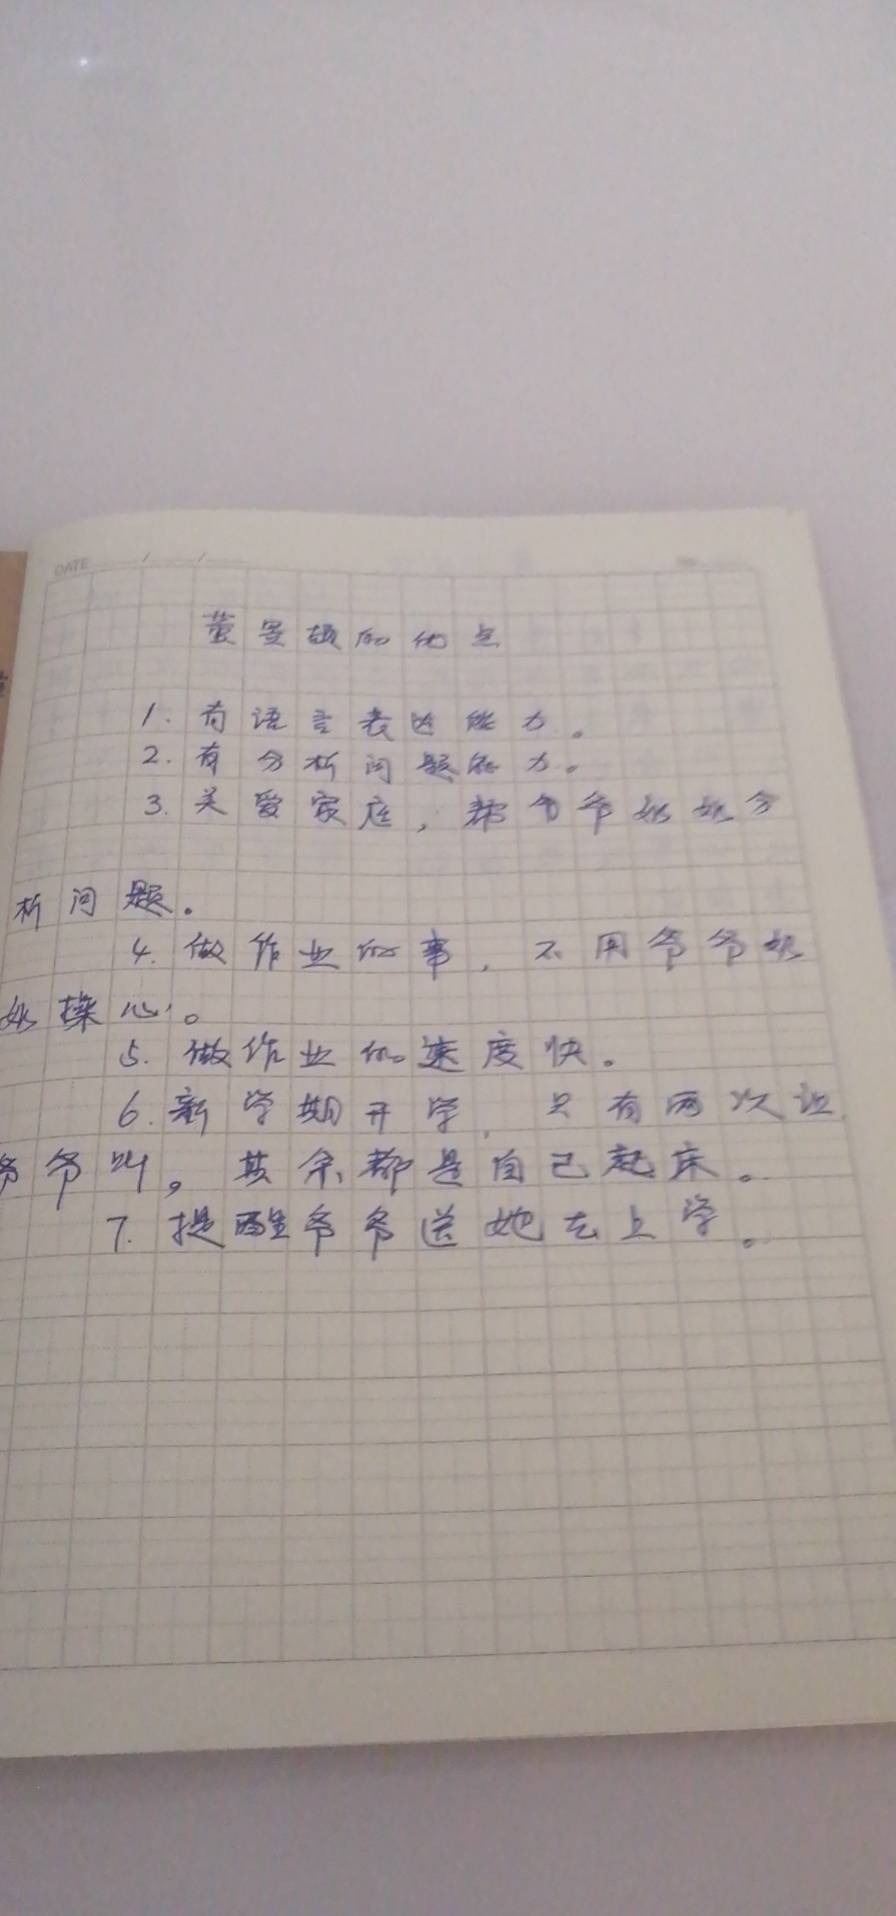 DATE / /
的优点
1. 有语言表达能力。
2. 有分析问题能力。
3. 关爱家庭，帮爷爷奶奶分
析问题。
4. 做作业的事，不用爷爷奶
奶操心。
5. 做作业的速度快。
6. 新学期开学，只有两次让
爷爷叫，其余都是自己起床。
7. 提醒爷爷送她去上学。